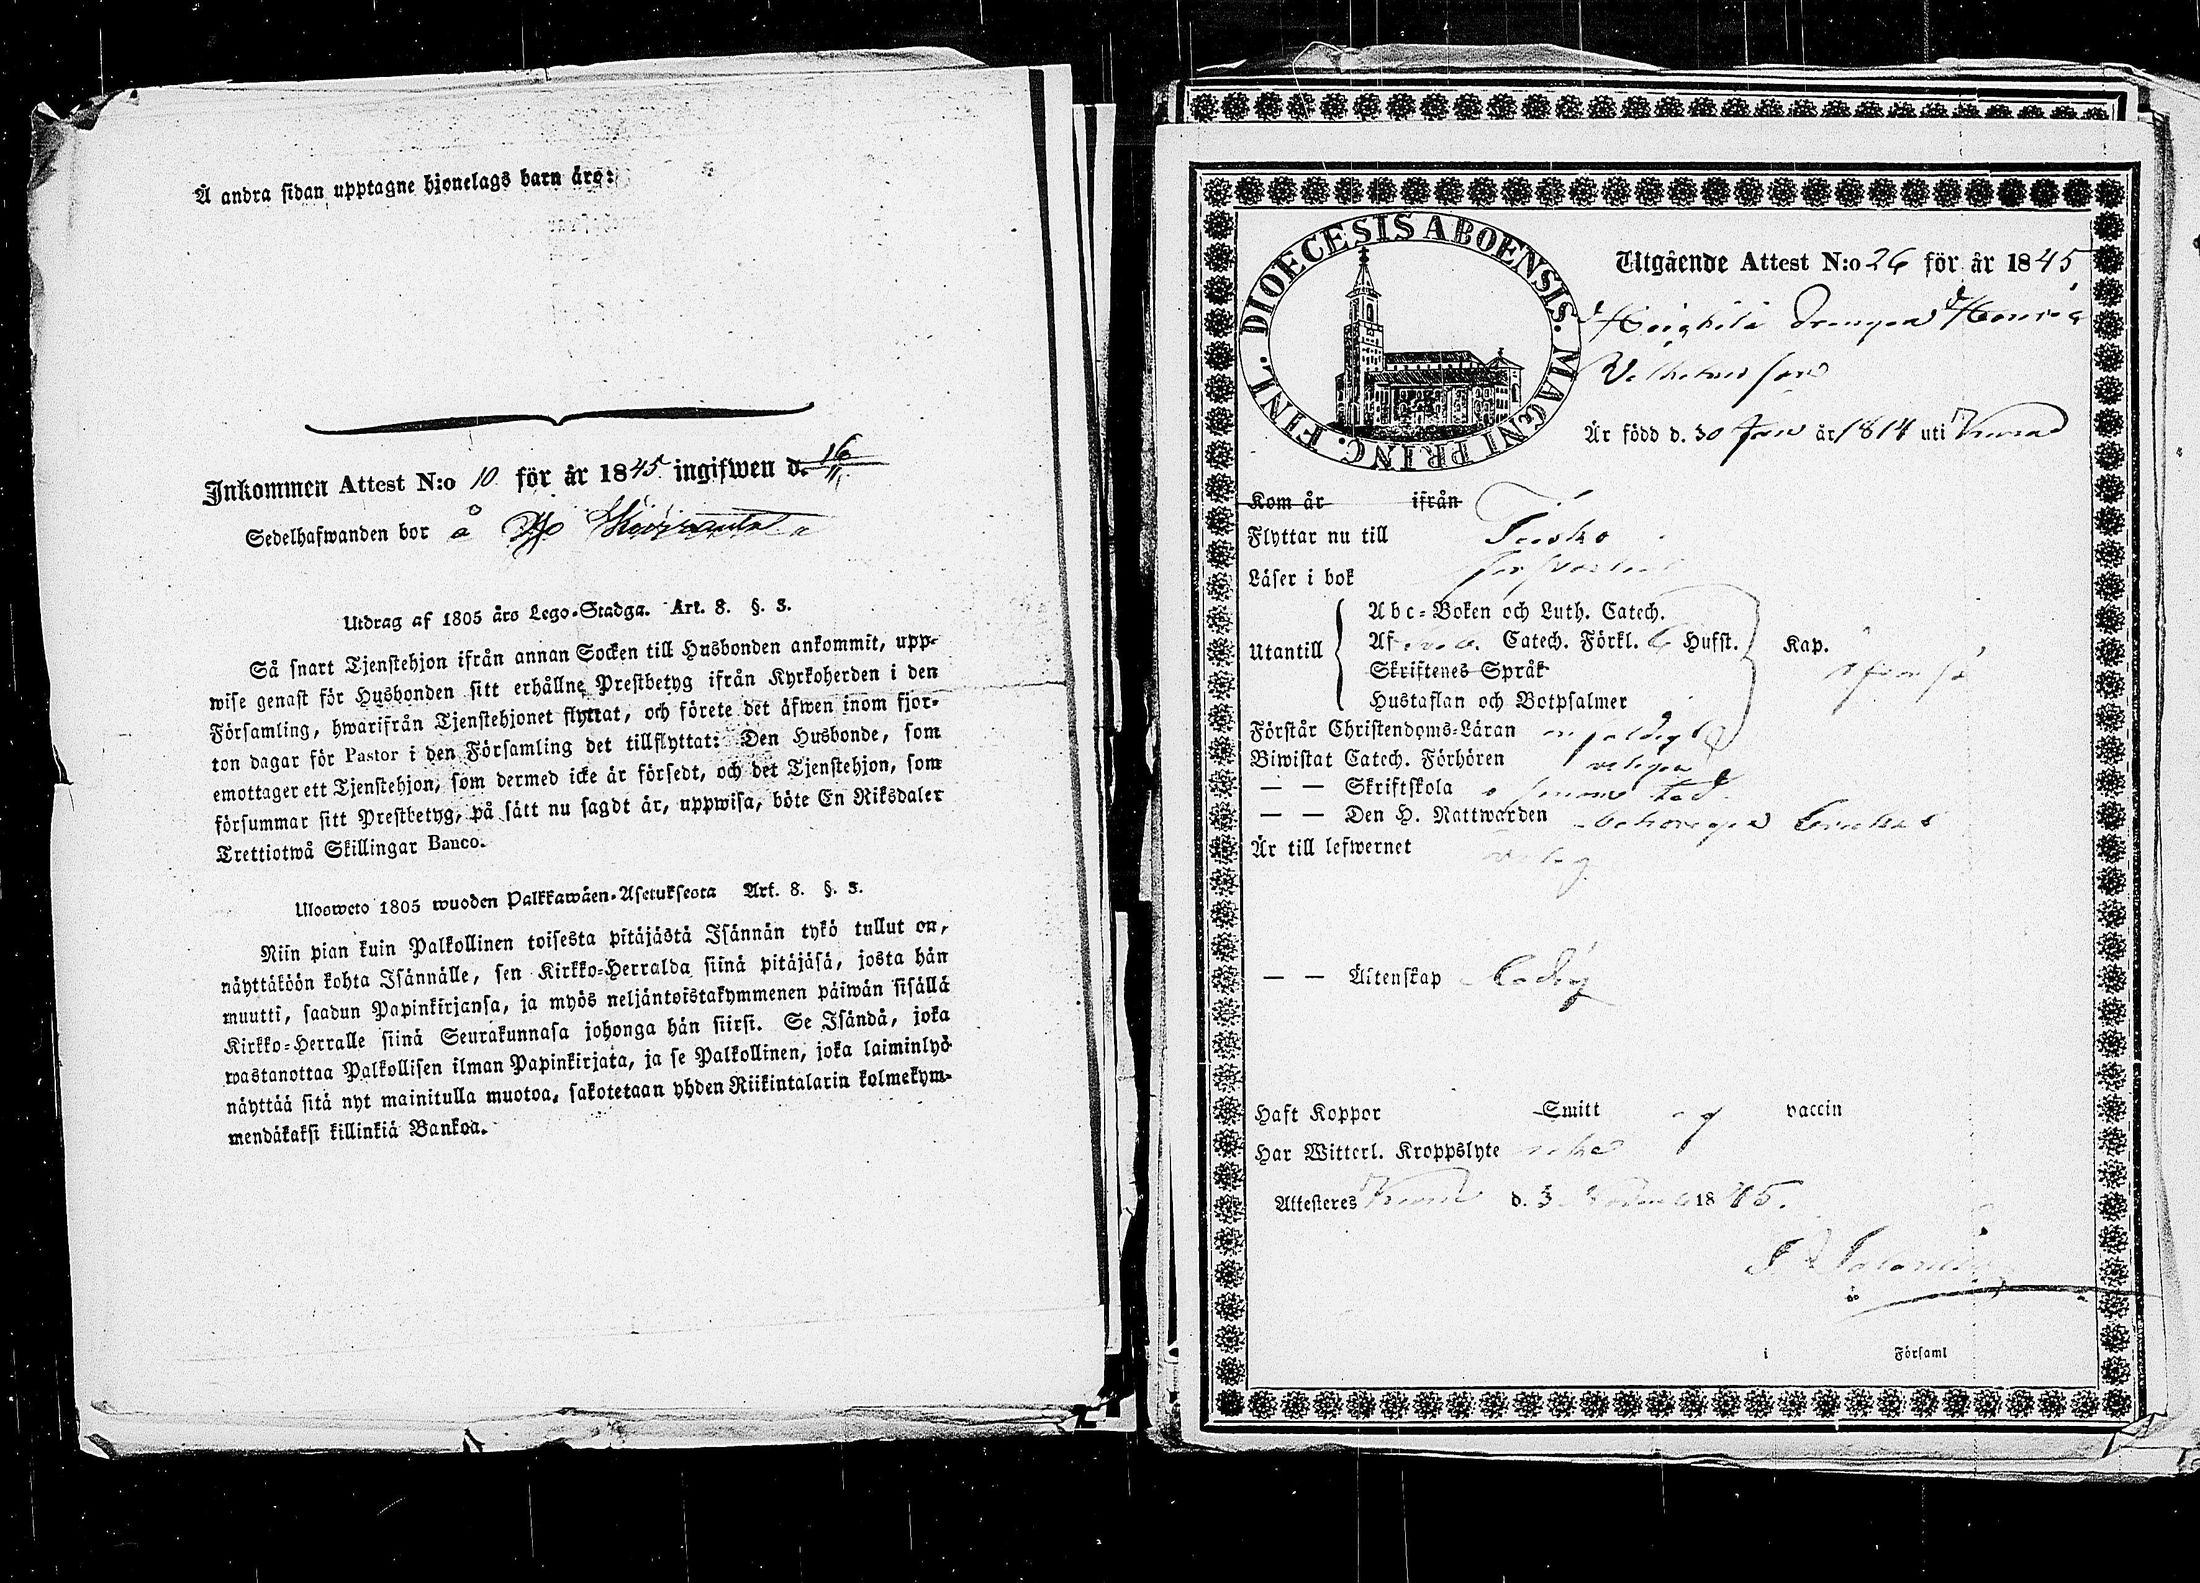 Å andra sidan upptagne hjonelags barn äro:
Inkommen Attest N:o 10 för år 1845 ingifwen d. 16/11
Sedelhafwanden bor å
Utdrag af 1805 års Lego-Stadga. Art. 8. §. 3.
Så snart Tjenstehjon ifrån annan Socken till Husbonden ankommit, upp-
wise genast för Husbonden sitt erhållne Prestbetyg ifrån Kyrkoherden i den
Församling, hwarifrån Tjenstehjonet flyttat, och förete det äfwen inom fjor-
ton dagar för Pastor i den Församling det tillflyttat: Den Husbonde, som
emottager ett Tjenstehjon, som dermed icke är försedt, och det Tjenstehjon, som
försummar sitt Prestbetyg, på sätt nu sagdt är, uppwisa, böte En Riksdaler
Trettiotwå Skillingar Banco.
Ulosweto 1805 wuoden Palkkawäen-Asetuksesta Art. 8. §. 3.
Niin pian kuin Palkollinen toisesta pitäjästä Isännän tykö tullut on,
näyttäköön kohta Isännälle, sen Kirkko-Herralda siinä pitäjäsä, josta hän
muutti, saadun Papinkirjansa, ja myös neljäntoistakymmenen päiwän sisällä
Kirkko-Herralle siinä Seurakunnasa johonga hän siirsi. Se Isändä, joka
wastanottaa Palkollisen ilman Papinkirjata, ja se Palkollinen, joka laiminlyö
näyttää sitä nyt mainitulla muotoa, sakotetaan yhden Riikintalarin kolmekym-
mendäkaksi killinkiä Bankoa.
DIOECESIS ABOENSIS. MAGNI PRINC. FINL.
Utgående Attest N:o 26 för år 1845
drengen Henric
Vilhelmsson
Är född d. 30 Jan år 1814 uti
Kom år ifrån
Flyttar nu till
Läser i bok försvarligt
Utantill
Abc-Boken och Luth. Catech.
Af Catech. Förkl. 6 Hufst. Kap.
Skriftenes Språk
Hustaflan och Botpsalmer
Förstår Christendoms-Läran enfaldigt
Biwistat Catech. Förhören
— — Skriftskola
— — Den H. Nattwarden
Är till lefwernet
— — Äktenskap Ledig
Haft Koppor Smitt vaccin
Har Witterl. Kroppslyte icke
Attesteres d. 3 1845.
i Församl